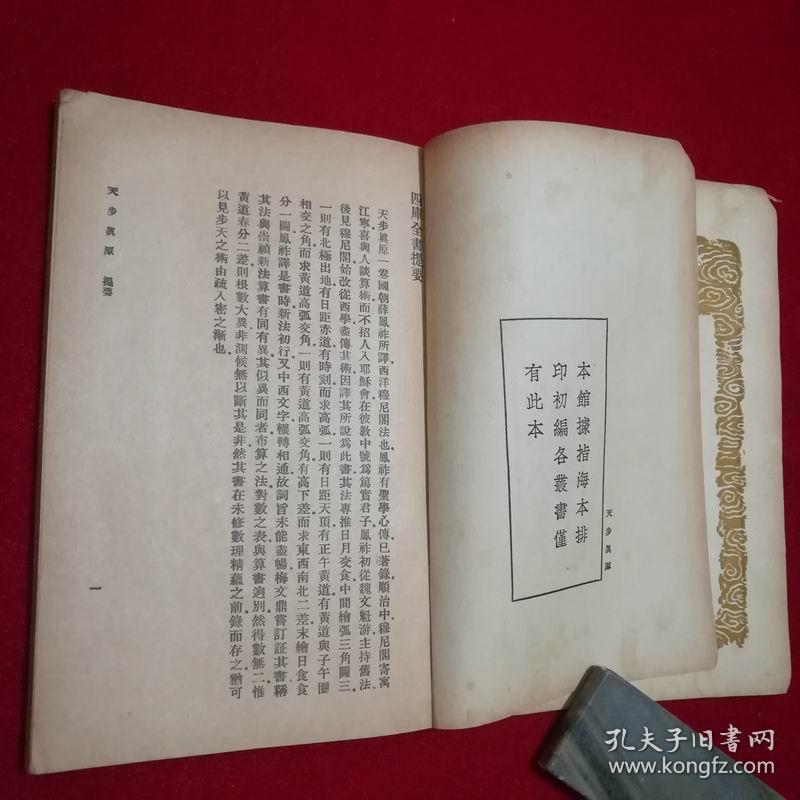 本館據指海本排
印初編各叢書僅
有此本
天步眞原
四庫全書提要
天步眞原一卷國朝薛鳳祚所譯西洋穆尼閣法也鳳祚有聖學心傳已著錄順治中穆尼閣寄寓
江寧喜與人談算術而不招人入耶穌會在彼敎中號爲篤實君子鳳祚初從魏文魁游主持舊法
後見穆尼閣始改從西學盡傳其術因譯其所說爲此書其法專推日月交食中間繪弧三角圖三
一則有北極出地有日距赤道有時刻而求高弧一則有日距天頂有正午黃道有黃道與子午圈
相交之角而求黃道高弧交角一則有黃道高弧交角有高下差而求東西南北二差末繪日食食
分一圖鳳祚譯是書時新法初行又中西文字輾轉相通故詞旨未能盡暢梅文鼎嘗訂証其書稱
其法與崇禎新法算書有同有異其似異而同者布算之法對數之表與算書逈別然得數無二惟
黃道春分二差則根數大異非測候無以斷其是非然其書在未修數理精蘊之前錄而存之猶可
以見步天之術由疏入密之漸也
天步眞原 提要
一
孔夫子旧书网
www.kongfz.com